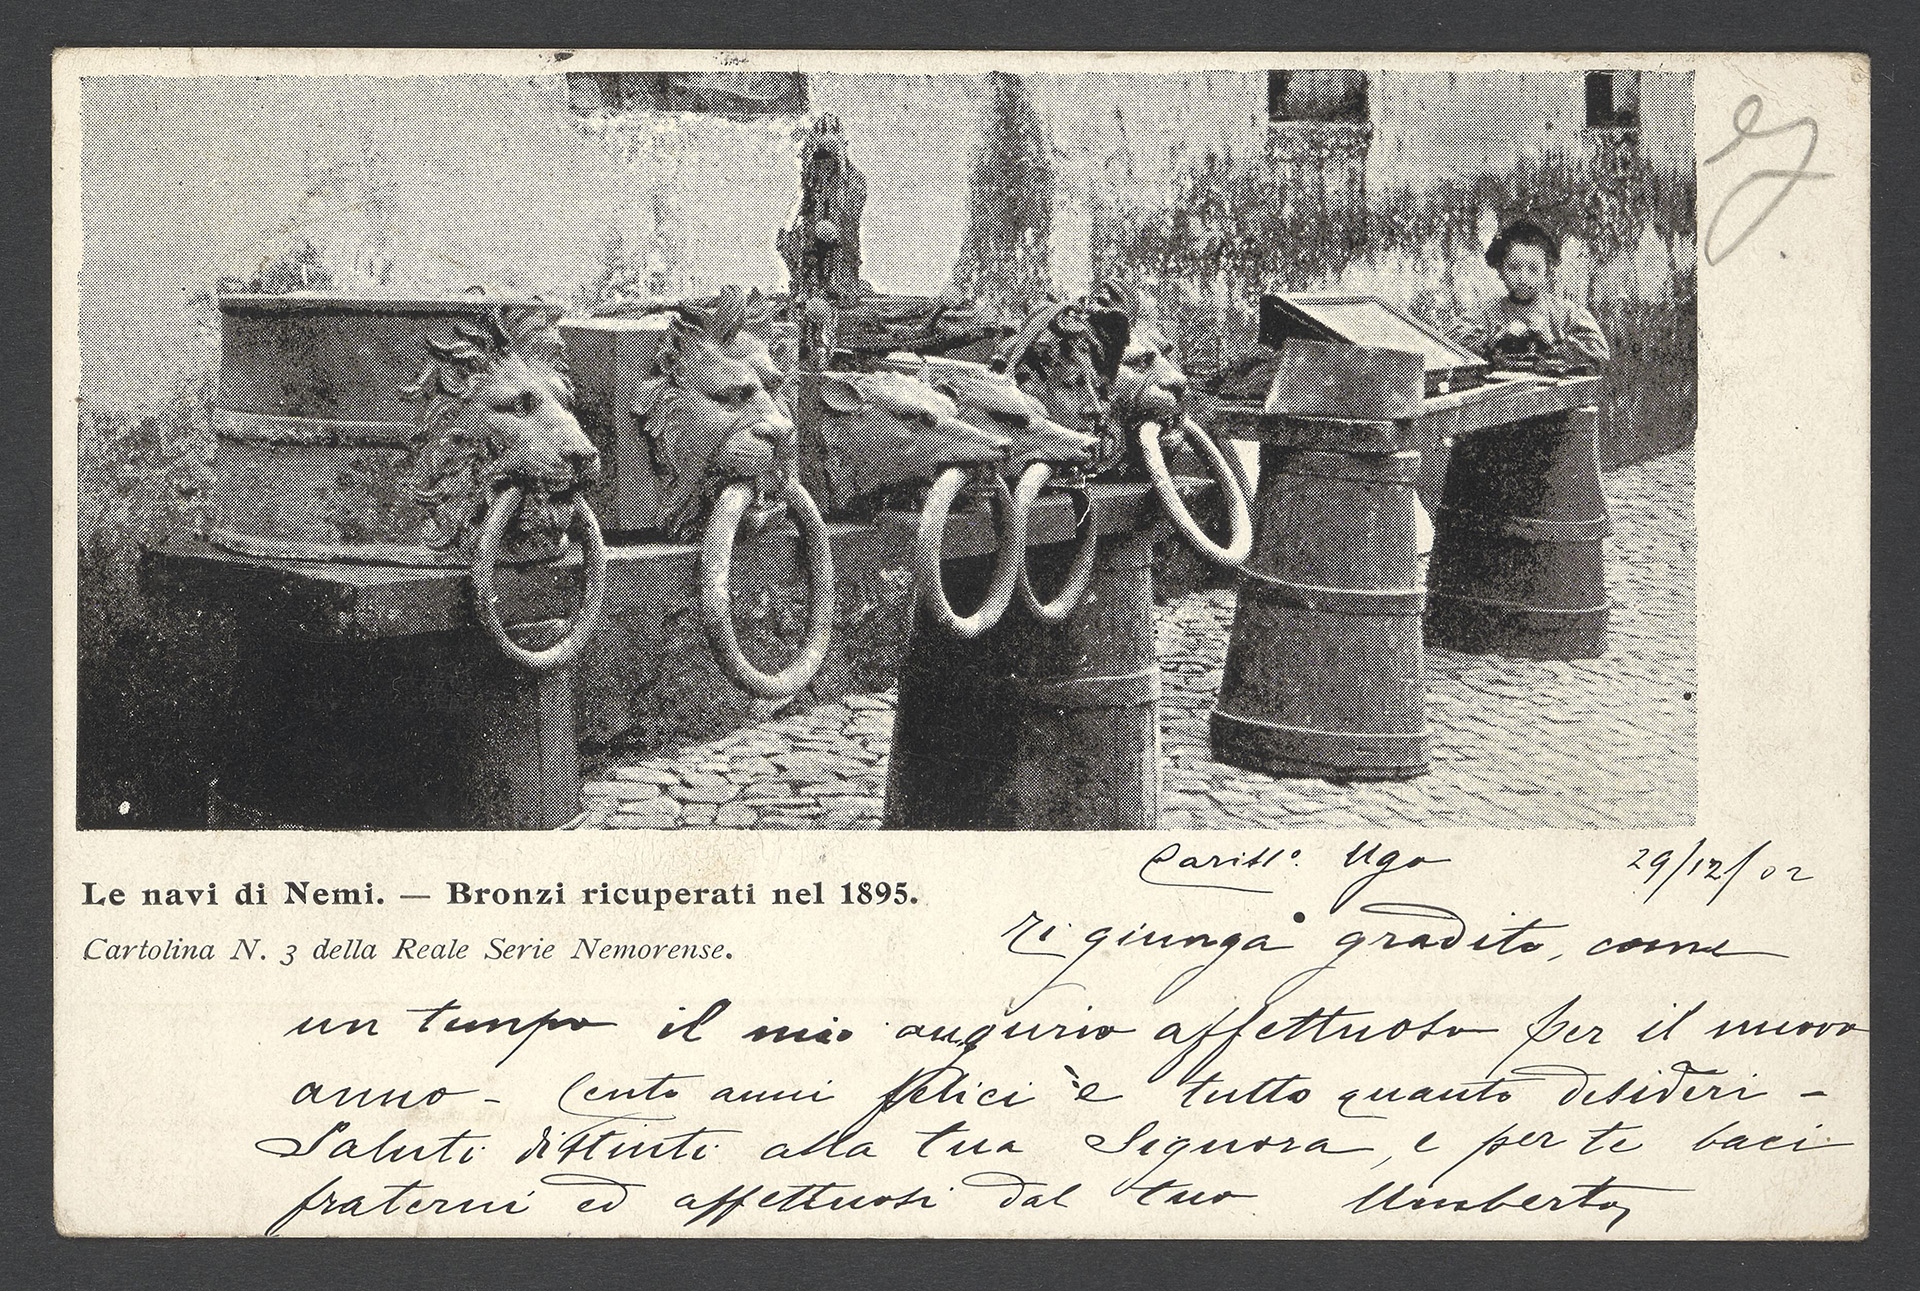 Le navi di Nemi. — Bronzi ricuperati nel 1895.
Cartolina N. 3 della Reale Serie Nemorense.
Cariss°. Ugo 29/12/02
Ti giunga gradito, come
un tempo il mio augurio affettuoso per il nuovo
anno - Cento anni felici e tutto quanto desideri -
Saluti distinti alla tua Signora, e per te baci
fraterni ed affettuosi dal tuo Umberto